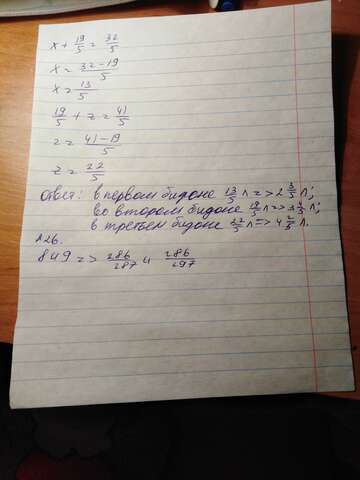 x + 19/5 = 32/5
x = 32-19/5
x = 13/5
19/5 + z = 41/5
z = 41-19/5
z = 22/5
Ответ: в первом бидоне 13/5 л => 2 3/5 л;
во втором бидоне 19/5 л => 3 4/5 л;
в третьем бидоне 22/5 л => 4 2/5 л.
126.
8 и 9 => 286/287 и 286/297